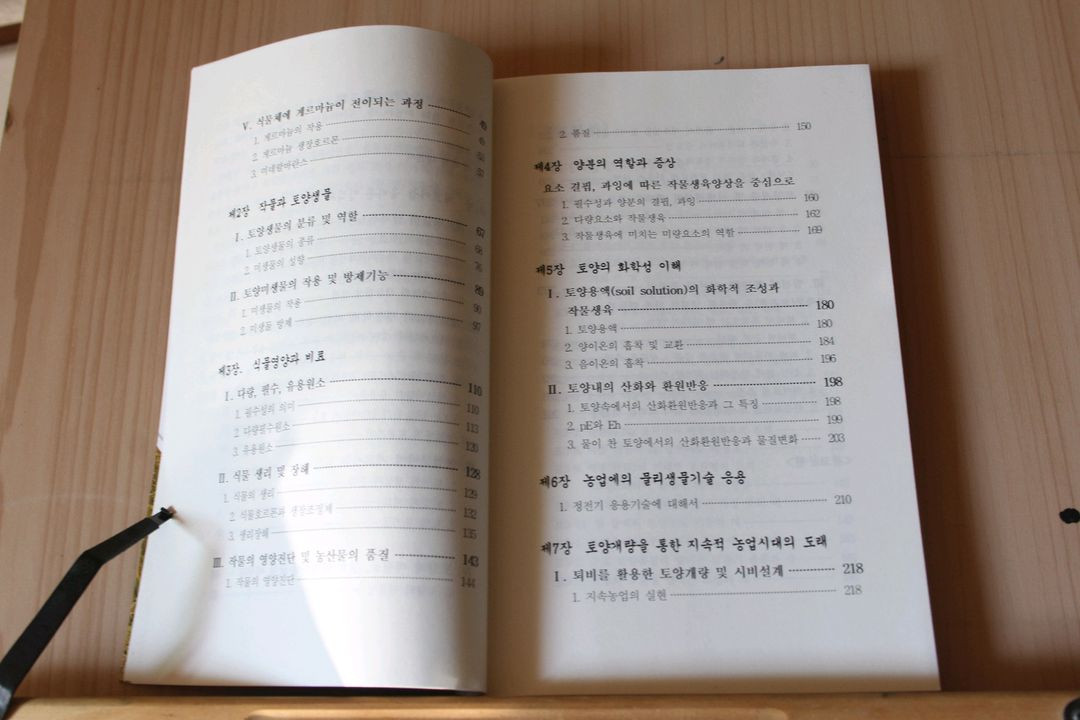 Ⅴ. 식물체에 게르마늄이 전이되는 과정 49
1. 게르마늄의 작용
2. 게르마늄 생장호르몬
3. 57
제2장 작물과 토양생물
Ⅰ. 토양생물의 분류 및 역할 67
1. 토양생물의 종류 68
2. 미생물의 실향 76
Ⅱ. 토양미생물의 작용 및 방제기능 89
1. 미생물의 작용 90
2. 미생물 방제 97
제3장. 식물영양과 비료
Ⅰ. 다량, 필수, 유용원소 110
1. 필수성의 의미 110
2. 다량필수원소 113
3. 유용원소 120
Ⅱ. 식물 생리 및 장해 128
1. 식물의 생리 129
2. 식물호르몬과 생장조정제 132
3. 생리장해 135
Ⅲ. 작물의 영양진단 및 농산물의 품질 143
1. 작물의 영양진단 144
2. 품질 150
제4장 양분의 역할과 증상
요소 결핍, 과잉에 따른 작물생육양상을 중심으로
1. 필수성과 양분의 결핍, 과잉 160
2. 다량요소와 작물생육 162
3. 작물생육에 미치는 미량요소의 역할 169
제5장 토양의 화학성 이해
Ⅰ. 토양용액(soil solution)의 화학적 조성과
작물생육 180
1. 토양용액 180
2. 양이온의 흡착 및 교환 184
3. 음이온의 흡착 196
Ⅱ. 토양내의 산화와 환원반응 198
1. 토양속에서의 산화환원반응과 그 특징 198
2. pE와 Eh 199
3. 물이 찬 토양에서의 산화환원반응과 물질변화 203
제6장 농업에의 물리생물기술 응용
1. 정전기 응용기술에 대해서 210
제7장 토양개량을 통한 지속적 농업시대의 도래
Ⅰ. 퇴비를 활용한 토양개량 및 시비설계 218
1. 지속농업의 실현 218